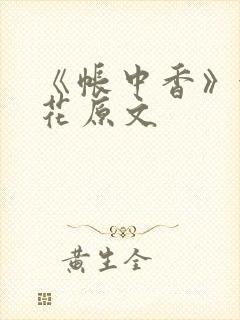 《帐中香》
花原文
黄生全